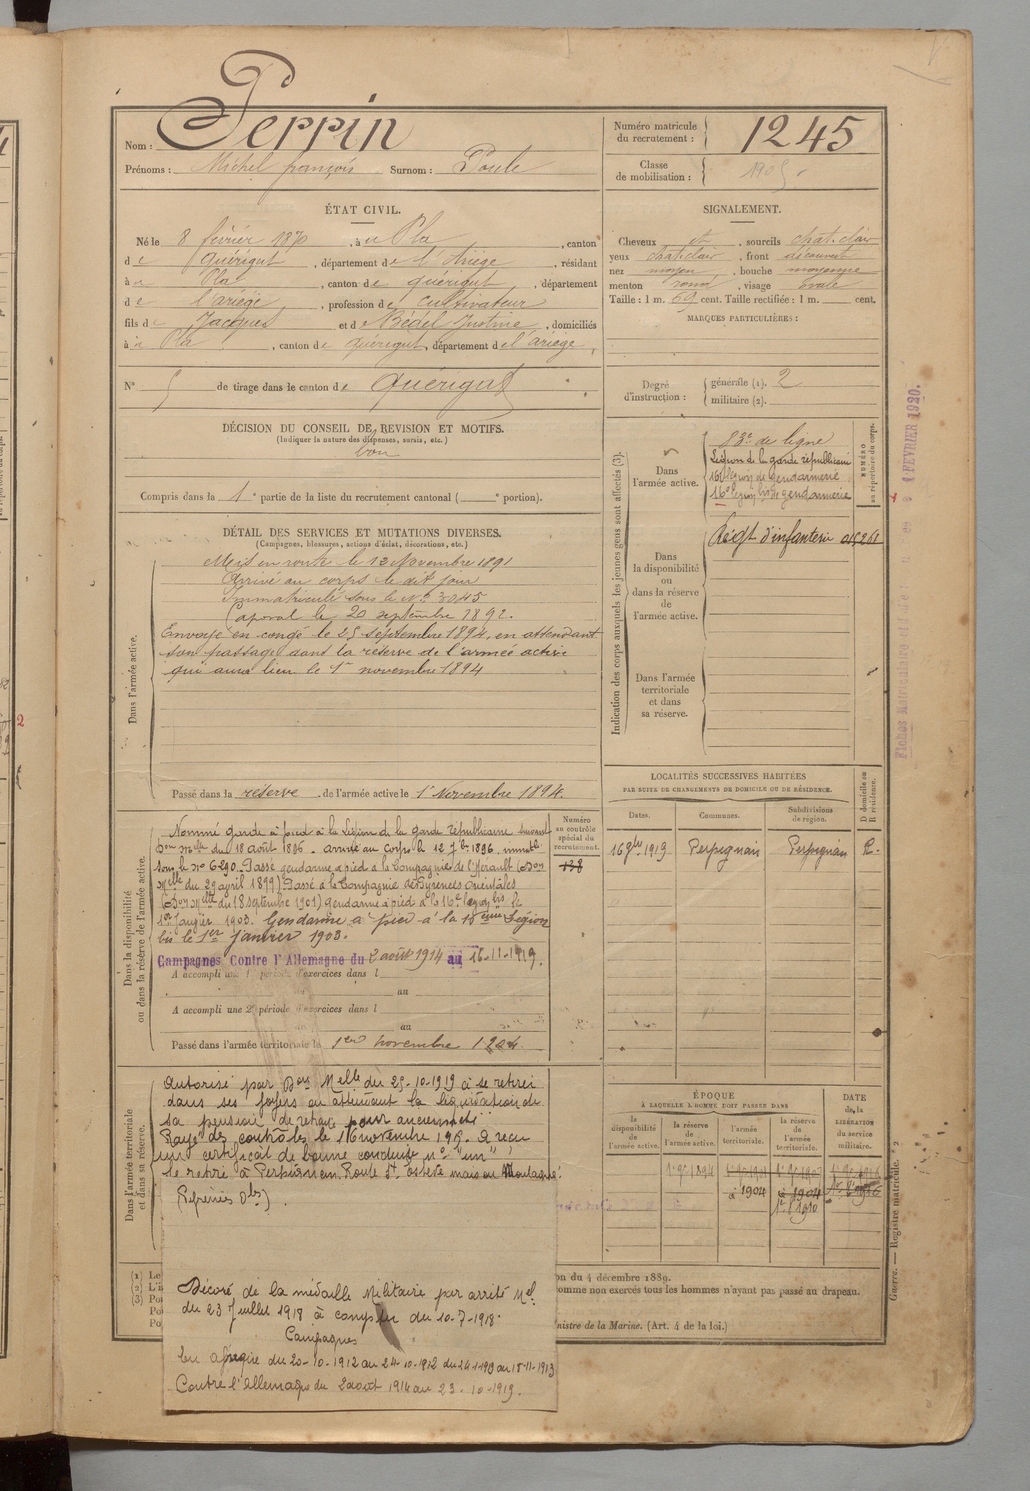 Nom : Peppin
Prénoms : Michel françois Surnom : Poule
Numéro matricule du recrutement : 1245
Classe de mobilisation : 1905
ÉTAT CIVIL.
Né le 8 février 1870, à u Pla, canton
d e Quérigut, département de l'Ariège, résidant
à u Pla, canton de quérigut, département
d e l'ariège, profession de cultivateur
fils d e Jacques et de Bédel Justine, domiciliés
à u Pla, canton de quérigut, département de l'ariège,
N° 5 de tirage dans le canton de Quérigut
SIGNALEMENT.
Cheveux et, sourcils chat. clair
yeux chat. clair, front découvert
nez moyen, bouche moyenne
menton rond, visage ovale
Taille : 1 m. 69 cent. Taille rectifiée : 1 m. cent.
MARQUES PARTICULIÈRES :
Degré d'instruction : générale (1). 2
militaire (2).
DÉCISION DU CONSEIL DE REVISION ET MOTIFS.
(Indiquer la nature des dispenses, sursis, etc.)
bon
Compris dans la 1e partie de la liste du recrutement cantonal ( e portion).
DÉTAIL DES SERVICES ET MUTATIONS DIVERSES.
(Campagnes, blessures, actions d'éclat, décorations, etc.)
Dans l'armée active.
Mis en route le 12 Novembre 1891
Arrivé au corps le dit jour
Immatriculé sous le N° 3045
Caporal le 20 septembre 1892.
Envoyé en congé le 25 septembre 1894, en attendant
son passage dans la réserve de l'armée active
qui aura lieu le 1r novembre 1894
Passé dans la réserve de l'armée active le 1r Novembre 1894.
Indication des corps auxquels les jeunes gens sont affectés (3).
NUMÉRO au répertoire du corps.
Dans l'armée active.
83e de ligne
Légion de la garde républicaine
16e légion de Gendarmerie
16e légion bis de gendarmerie
Dans la disponibilité ou dans la réserve de l'armée active.
Régt d'infanterie
Dans l'armée territoriale et dans sa réserve.
Fiches Matriculaire
FÉVRIER 1920.
LOCALITÉS SUCCESSIVES HABITÉES
PAR SUITE DE CHANGEMENTS DE DOMICILE OU DE RÉSIDENCE.
D domicile ou R résidence.
Dates. Communes. Subdivisions de région.
16 9bre 1919 Perpignan Perpignan R.
Dans la disponibilité ou dans la réserve de l'armée active.
Numéro au contrôle spécial du recrutement.
138
Nommé garde à pied à la Légion de la garde républicaine suivant
Don Melle du 18 août 1896. arrivé au corps le 12 7bre 1896, immatle
sous le No 6290. Passé gendarme à pied à la Compagnie de l'Hérault (Don
Melle du 29 avril 1899) Passé à la Compagnie des Pyrénées Orientales
(Don Melle du 18 septembre 1901) gendarme à pied à la 16e légion bis le
1er Janvier 1903. Gendarme à pied à la 16ème Légion
bis le 1er Janvier 1903.
Campagnes Contre l'Allemagne du 2 août 1914 au 16-11-1919.
A accompli une 1re période d'exercices dans l
du au
A accompli une 2e période d'exercices dans l
du au
Passé dans l'armée territoriale le 1er novembre 1904
Dans l'armée territoriale et dans sa réserve.
Autorisé par Don Melle du 25-10-1919 à se retirer
dans ses foyers en attendant la liquidation de
sa pension de retraite pour ancienneté
Rayé des contrôles le 16 novembre 1919. A reçu
un certificat de bonne conduite n° "un"
Se retire à Perpignan Route
(Pyrénées Oles).
Décoré de la médaille Militaire par arrêté Mel
du 23 Juillet 1918 à compter du 10-7-1918.
Campagnes
En algérie du 20-10-1912 au 24-10-1912 du 24-1-1913 au 15-11-1913
Contre l'Allemagne du 2 août 1914 au 23-10-1919.
ÉPOQUE
À LAQUELLE L'HOMME DOIT PASSER DANS
DATE de la LIBÉRATION du service militaire.
la disponibilité de l'armée active.
la réserve de l'armée active.
l'armée territoriale.
la réserve de l'armée territoriale.
1r 9bre 1894
1904
1904
(1) Le
(2) L'i
(3) Po
Po
Po
on du 4 décembre 1889.
omme non exercés tous les hommes n'ayant pas passé au drapeau.
nistre de la Marine. (Art. 4 de la loi.)
Guerre. — Registre matricule. 2